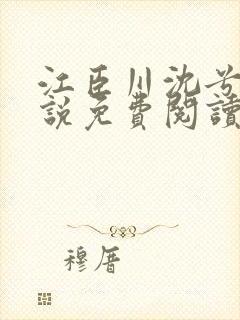 江臣川沈兮
說免費閱讀
穆厝